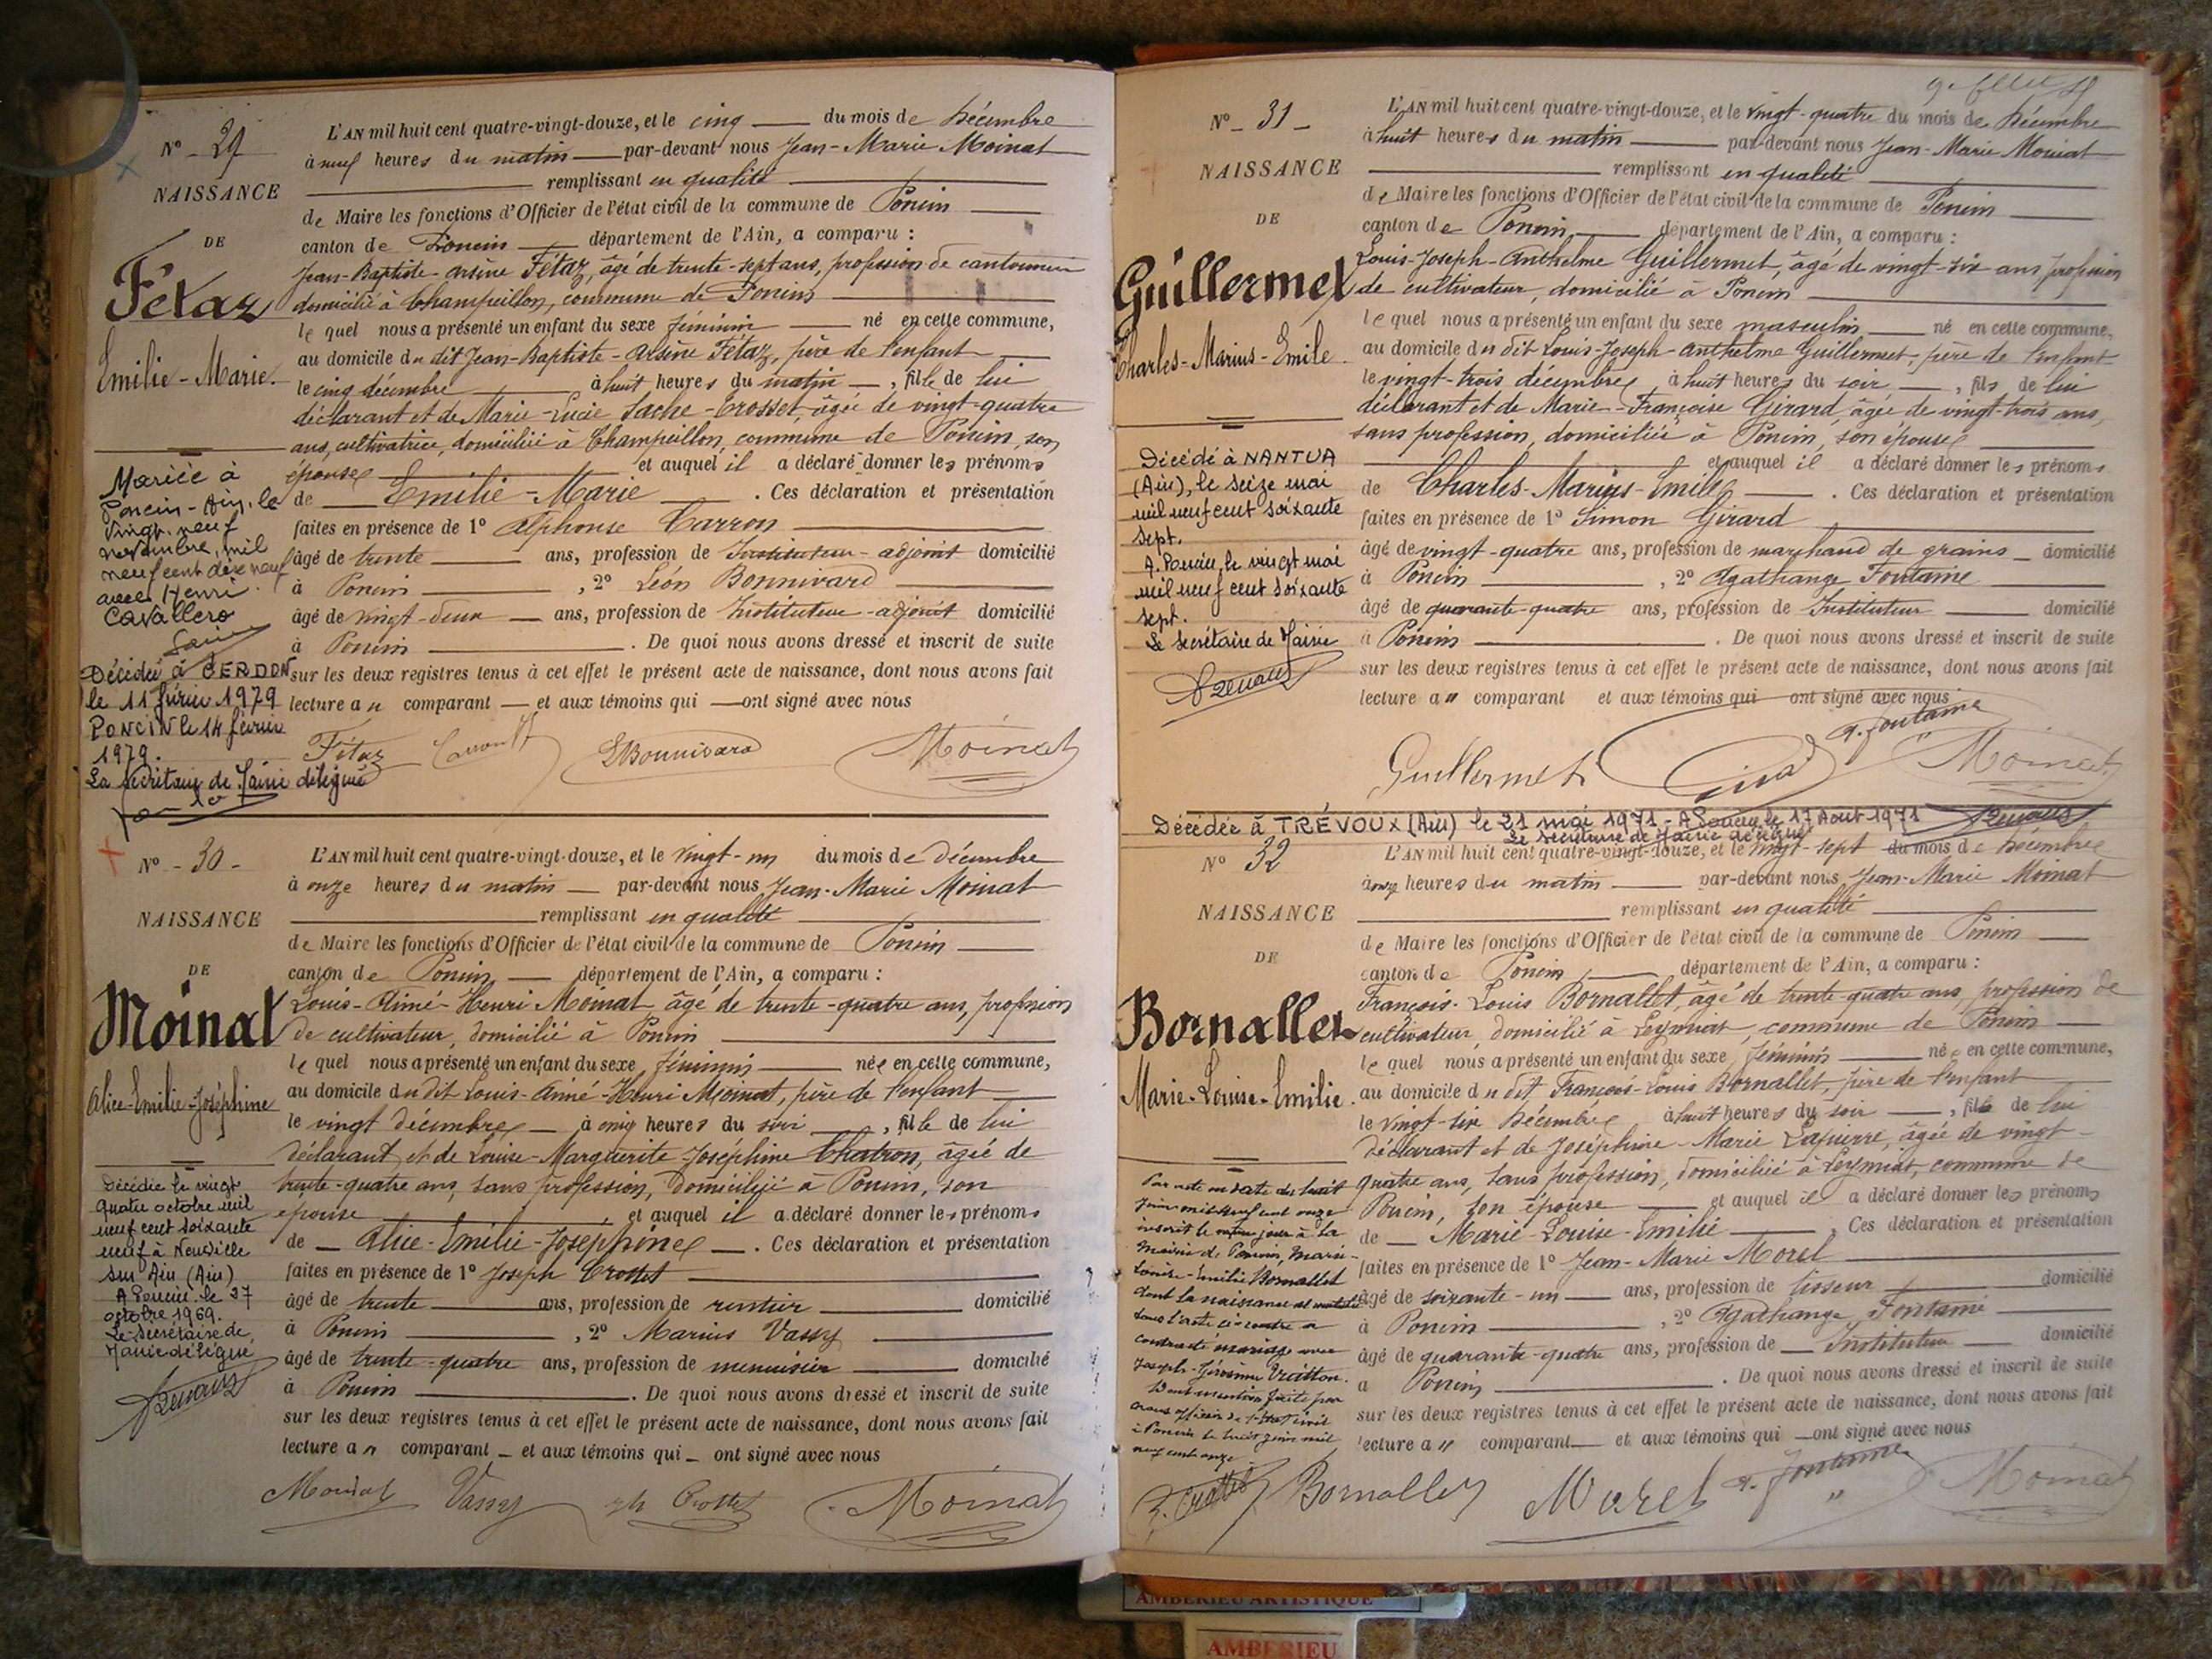 N° - 29
NAISSANCE
DE
Fétaz
Emilie-Marie.
Mariée à
Poncin-Ain, le
vingt-neuf
novembre, mil
neuf cent dix neuf
avec Henri
Cavallero
Décédée à CERDON
le 11 février 1979
PONCIN le 14 février
1979.
La Secrétaire de Mairie déléguée
L'AN mil huit cent quatre-vingt-douze, et le cinq du mois de Décembre
à neuf heures du matin par-devant nous Jean-Marie Moinat
remplissant en qualité
de Maire les fonctions d'Officier de l'état civil de la commune de Poncin
canton de Poncin département de l'Ain, a comparu :
Jean-Baptiste-Arsène Fétaz, âgé de trente-sept ans, profession de cantonnier
domicilié à Champeillon, commune de Poncin
le quel nous a présenté un enfant du sexe féminin né en cette commune,
au domicile du dit Jean-Baptiste-Arsène Fétaz, père de l'enfant
le cinq décembre à huit heures du matin, fille de lui
déclarant et de Marie-Lucie Sache-Crosset, âgée de vingt-quatre
ans, cultivatrice, domiciliée à Champeillon, commune de Poncin, son
épouse et auquel il a déclaré donner les prénoms
de Emilie-Marie. Ces déclaration et présentation
faites en présence de 1° Alphonse Carron
âgé de trente ans, profession de Instituteur-adjoint domicilié
à Poncin, 2° Léon Bonnivard
âgé de vingt-deux ans, profession de Instituteur-adjoint domicilié
à Poncin. De quoi nous avons dressé et inscrit de suite
sur les deux registres tenus à cet effet le présent acte de naissance, dont nous avons fait
lecture au comparant et aux témoins qui ont signé avec nous
Fétaz Carron LBonnivard Moinat
N° - 30 -
NAISSANCE
DE
Moinat
Alice-Emilie-Joséphine
Décédée le vingt
quatre octobre mil
neuf cent soixante
neuf à Neuville
sur Ain (Ain)
A Poncin le 27
octobre 1969.
Le Secrétaire de
Mairie délégué
L'AN mil huit cent quatre-vingt-douze, et le vingt-un du mois de décembre
à onze heures du matin par-devant nous Jean-Marie Moinat
remplissant en qualité
de Maire les fonctions d'Officier de l'état civil de la commune de Poncin
canton de Poncin département de l'Ain, a comparu :
Louis-Aimé-Henri Moinat âgé de trente-quatre ans, profession
de cultivateur, domicilié à Poncin
le quel nous a présenté un enfant du sexe féminin née en cette commune,
au domicile du dit Louis-Aimé-Henri Moinat, père de l'enfant
le vingt décembre à onze heures du soir, fille de lui
déclarant et de Louise-Marguerite-Joséphine Chatron, âgée de
trente-quatre ans, sans profession, domiciliée à Poncin, son
épouse et auquel il a déclaré donner les prénoms
de Alice-Emilie-Joséphine. Ces déclaration et présentation
faites en présence de 1° Joseph Crottet
âgé de trente ans, profession de rentier domicilié
à Poncin, 2° Marius Vassy
âgé de trente-quatre ans, profession de menuisier domicilié
à Poncin. De quoi nous avons dressé et inscrit de suite
sur les deux registres tenus à cet effet le présent acte de naissance, dont nous avons fait
lecture au comparant et aux témoins qui ont signé avec nous
Moinat Vassy Jh Crottet Moinat
N° - 31 -
NAISSANCE
DE
Guillermet
Charles-Marius-Emile.
Décédé à NANTUA
(Ain), le seize mai
mil neuf cent soixante
sept.
A Poncin, le vingt mai
mil neuf cent soixante
sept.
Le Secrétaire de Mairie
L'AN mil huit cent quatre-vingt-douze, et le vingt-quatre du mois de Décembre
à huit heures du matin par-devant nous Jean-Marie Moinat
remplissant en qualité
de Maire les fonctions d'Officier de l'état civil de la commune de Poncin
canton de Poncin département de l'Ain, a comparu :
Louis-Joseph-Anthelme Guillermet, âgé de vingt-six ans profession
de cultivateur, domicilié à Poncin
le quel nous a présenté un enfant du sexe masculin né en cette commune,
au domicile du dit Louis-Joseph-Anthelme Guillermet, père de l'enfant
le vingt-trois décembre, à huit heures du soir, fils de lui
déclarant et de Marie-Françoise Girard, âgée de vingt-trois ans,
sans profession, domiciliée à Poncin, son épouse
et auquel il a déclaré donner les prénoms
de Charles-Marius-Emile. Ces déclaration et présentation
faites en présence de 1° Simon Girard
âgé de vingt-quatre ans, profession de marchand de grains domicilié
à Poncin, 2° Agathange Fontaine
âgé de quarante-quatre ans, profession de Instituteur domicilié
à Poncin. De quoi nous avons dressé et inscrit de suite
sur les deux registres tenus à cet effet le présent acte de naissance, dont nous avons fait
lecture au comparant et aux témoins qui ont signé avec nous
Guillermet Girard A. Fontaine Moinat
Décédée à TRÉVOUX (Ain) le 21 mai 1971 - A Poncin le 17 Aout 1971
Le Secrétaire de Mairie délégué
N° 32
NAISSANCE
DE
Bornallet
Marie-Louise-Emilie.
Par acte en date du huit
Juin mil neuf cent onze
inscrit le même jour à la
mairie de Poncin, Marie-
Louise-Emilie Bornallet
dont la naissance est constatée
dans l'acte ci-contre a
contracté mariage avec
Dont mention faite par
nous officier de l'état civil
à Poncin le huit juin mil
neuf cent onze
L'AN mil huit cent quatre-vingt-douze, et le vingt-sept du mois de Décembre
à onze heures du matin par-devant nous Jean-Marie Moinat
remplissant en qualité
de Maire les fonctions d'Officier de l'état civil de la commune de Poncin
canton de Poncin département de l'Ain, a comparu :
François-Louis Bornallet, âgé de trente-quatre ans, profession de
cultivateur, domicilié à Leymiat, commune de Poncin
le quel nous a présenté un enfant du sexe féminin née en cette commune,
au domicile du dit François-Louis Bornallet, père de l'enfant
le vingt-six Décembre à huit heures du soir, fille de lui
déclarant et de Joséphine-Marie Lapierre, âgée de vingt-
quatre ans, sans profession, domiciliée à Leymiat, commune de
Poncin, son épouse et auquel il a déclaré donner les prénoms
de Marie-Louise-Emilie. Ces déclaration et présentation
faites en présence de 1° Jean-Marie Morel
âgé de soixante-un ans, profession de tisseur domicilié
à Poncin, 2° Agathange Fontaine
âgé de quarante-quatre ans, profession de Instituteur domicilié
à Poncin. De quoi nous avons dressé et inscrit de suite
sur les deux registres tenus à cet effet le présent acte de naissance, dont nous avons fait
lecture au comparant et aux témoins qui ont signé avec nous
Bornallet Morel A. Fontaine Moinat
AMBERIEU ARTISTIQUE
AMBERIEU